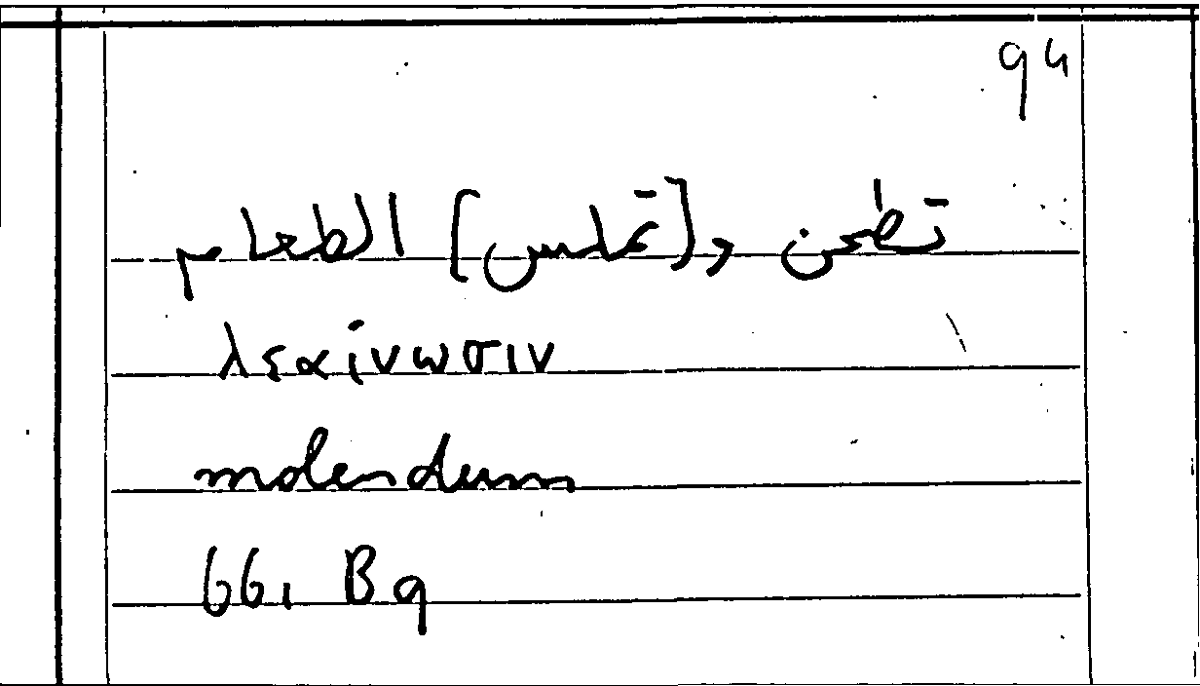 94
تطحن و[تملس] الطعام
λεαίνωσιν
molendum
661 B9